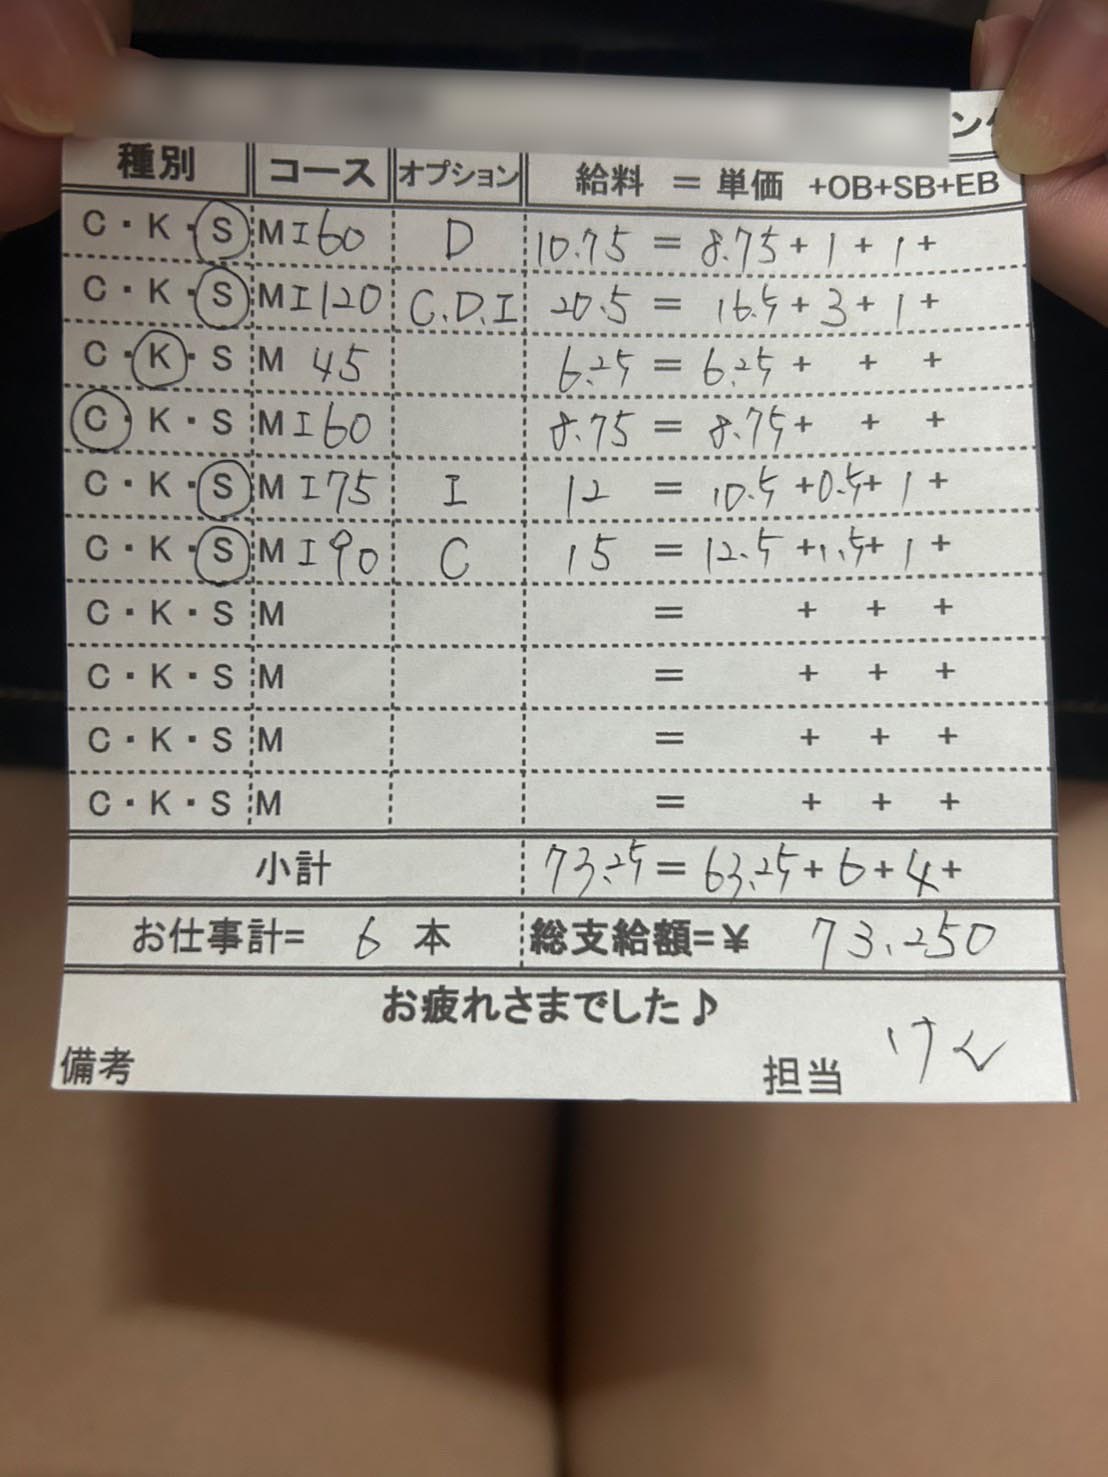 ン
種別 コース オプション 給料 = 単価 +OB+SB+EB
C・K・S M I60 D 10.75 = 8.75 + 1 + 1 +
C・K・S M I120 C.D.I 20.5 = 16.5 + 3 + 1 +
C・K・S M 45 6.25 = 6.25 + + +
C・K・S M I60 8.75 = 8.75 + + +
C・K・S M I75 I 12 = 10.5 + 0.5 + 1 +
C・K・S M I90 C 15 = 12.5 + 1.5 + 1 +
C・K・S M = + + +
C・K・S M = + + +
C・K・S M = + + +
C・K・S M = + + +
小計 73.25 = 63.25 + 6 + 4 +
お仕事計= 6 本 総支給額=¥ 73,250
お疲れさまでした♪
備考 担当 けん